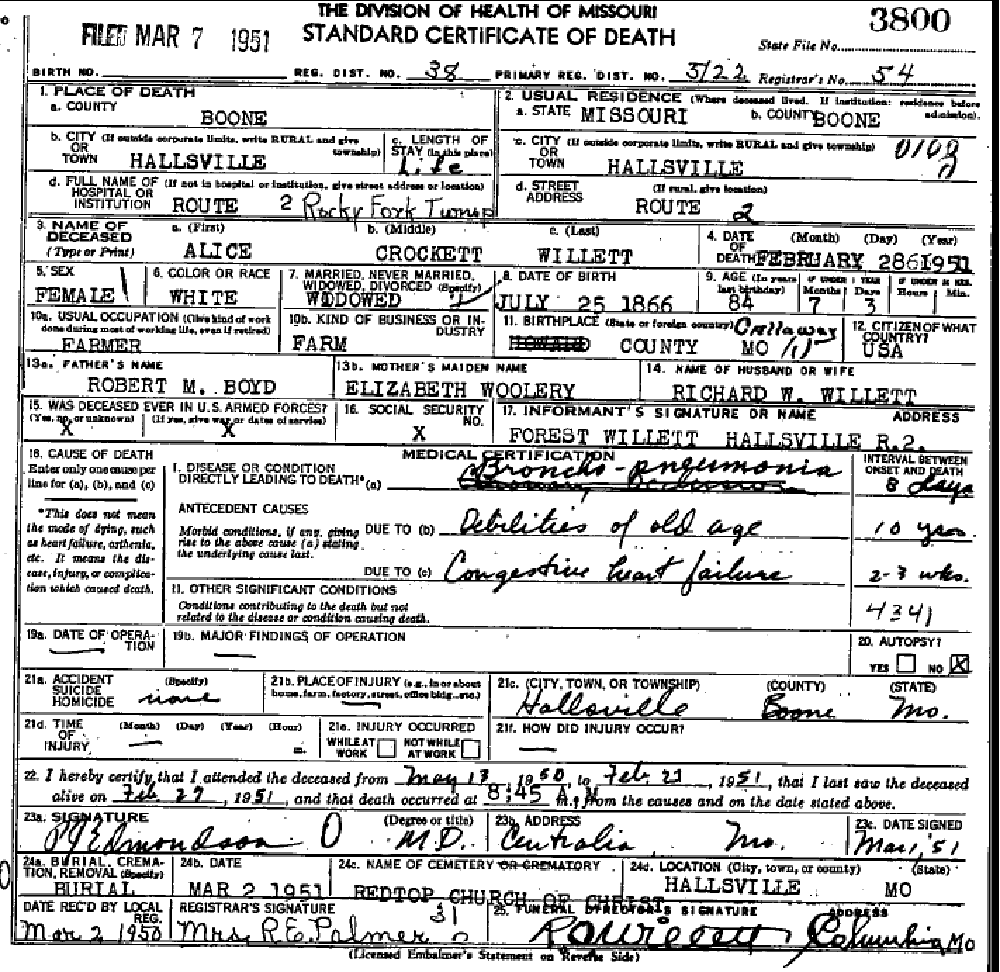 THE DIVISION OF HEALTH OF MISSOURI
3800
FILED MAR 7 1951
STANDARD CERTIFICATE OF DEATH
State File No.
BIRTH NO. REG. DIST. NO. 38 PRIMARY REG. DIST. NO. 5122 Registrar's No. 54
1. PLACE OF DEATH
a. COUNTY
BOONE
2. USUAL RESIDENCE (Where deceased lived. If institution: residence before admission).
a. STATE MISSOURI b. COUNTY BOONE
b. CITY (If outside corporate limits, write RURAL and give township)
OR
TOWN HALLSVILLE
c. LENGTH OF
STAY (in this place)
c. CITY (If outside corporate limits, write RURAL and give township)
OR
TOWN HALLSVILLE
d. FULL NAME OF (If not in hospital or institution, give street address or location)
HOSPITAL OR
INSTITUTION ROUTE 2 Rocky Fork Twnsp
d. STREET (If rural, give location)
ADDRESS
ROUTE 2
3. NAME OF DECEASED
(Type or Print)
a. (First) b. (Middle) c. (Last)
ALICE CROCKETT WILLETT
4. DATE OF DEATH (Month) (Day) (Year)
FEBRUARY 28 1951
5. SEX
FEMALE
6. COLOR OR RACE
WHITE
7. MARRIED, NEVER MARRIED,
WIDOWED, DIVORCED (Specify)
WIDOWED
8. DATE OF BIRTH
JULY 25 1866
9. AGE (In years last birthday)
84
IF UNDER 1 YEAR
Months Days
7 3
IF UNDER 24 HRS.
Hours Min.
10a. USUAL OCCUPATION (Give kind of work
done during most of working life, even if retired)
FARMER
10b. KIND OF BUSINESS OR INDUSTRY
FARM
11. BIRTHPLACE (State or foreign country)
Callaway
HOWARD COUNTY MO
12. CITIZEN OF WHAT
COUNTRY?
USA
13a. FATHER'S NAME
ROBERT M. BOYD
13b. MOTHER'S MAIDEN NAME
ELIZABETH WOOLERY
14. NAME OF HUSBAND OR WIFE
RICHARD W. WILLETT
15. WAS DECEASED EVER IN U.S. ARMED FORCES?
(Yes, no, or unknown) (If yes, give war or dates of service)
X X
16. SOCIAL SECURITY NO.
X
17. INFORMANT'S SIGNATURE OR NAME ADDRESS
FOREST WILLETT HALLSVILLE R.2.
18. CAUSE OF DEATH
Enter only one cause per
line for (a), (b), and (c)
*This does not mean
the mode of dying, such
as heart failure, asthenia,
etc. It means the dis-
ease, injury, or complica-
tion which caused death.
MEDICAL CERTIFICATION
I. DISEASE OR CONDITION
DIRECTLY LEADING TO DEATH* (a) Broncho-pneumonia
INTERVAL BETWEEN
ONSET AND DEATH
8 days
ANTECEDENT CAUSES
Morbid conditions, if any, giving
rise to the above cause (a) stating
the underlying cause last.
DUE TO (b) Debilities of old age 10 years
DUE TO (c) Congestive heart failure 2-3 wks.
II. OTHER SIGNIFICANT CONDITIONS
Conditions contributing to the death but not
related to the disease or condition causing death.
4341
19a. DATE OF OPERATION
19b. MAJOR FINDINGS OF OPERATION
20. AUTOPSY?
YES NO X
21a. ACCIDENT (Specify)
SUICIDE
HOMICIDE none
21b. PLACE OF INJURY (e.g., in or about
home, farm, factory, street, office bldg., etc.)
21c. (CITY, TOWN, OR TOWNSHIP) (COUNTY) (STATE)
Hallsville Boone Mo.
21d. TIME (Month) (Day) (Year) (Hour)
OF
INJURY m.
21e. INJURY OCCURRED
WHILE AT WORK NOT WHILE AT WORK
21f. HOW DID INJURY OCCUR?
22. I hereby certify that I attended the deceased from May 13, 1950 to Feb 27, 1951, that I last saw the deceased
alive on Feb 27, 1951, and that death occurred at 8:45 A m., from the causes and on the date stated above.
23a. SIGNATURE (Degree or title)
Edmondson M.D.
23b. ADDRESS
Centralia Mo.
23c. DATE SIGNED
Mar 1, '51
24a. BURIAL, CREMA-
TION, REMOVAL (Specify)
BURIAL
24b. DATE
MAR 2 1951
24c. NAME OF CEMETERY OR CREMATORY
REDTOP CHURCH OF CHRIST
24d. LOCATION (City, town, or county) (State)
HALLSVILLE MO
DATE REC'D BY LOCAL REG.
Mar 2 1950
REGISTRAR'S SIGNATURE
Mrs. R.E. Palmer
31
25. FUNERAL DIRECTOR'S SIGNATURE ADDRESS
Columbia Mo
(Licensed Embalmer's Statement on Reverse Side)